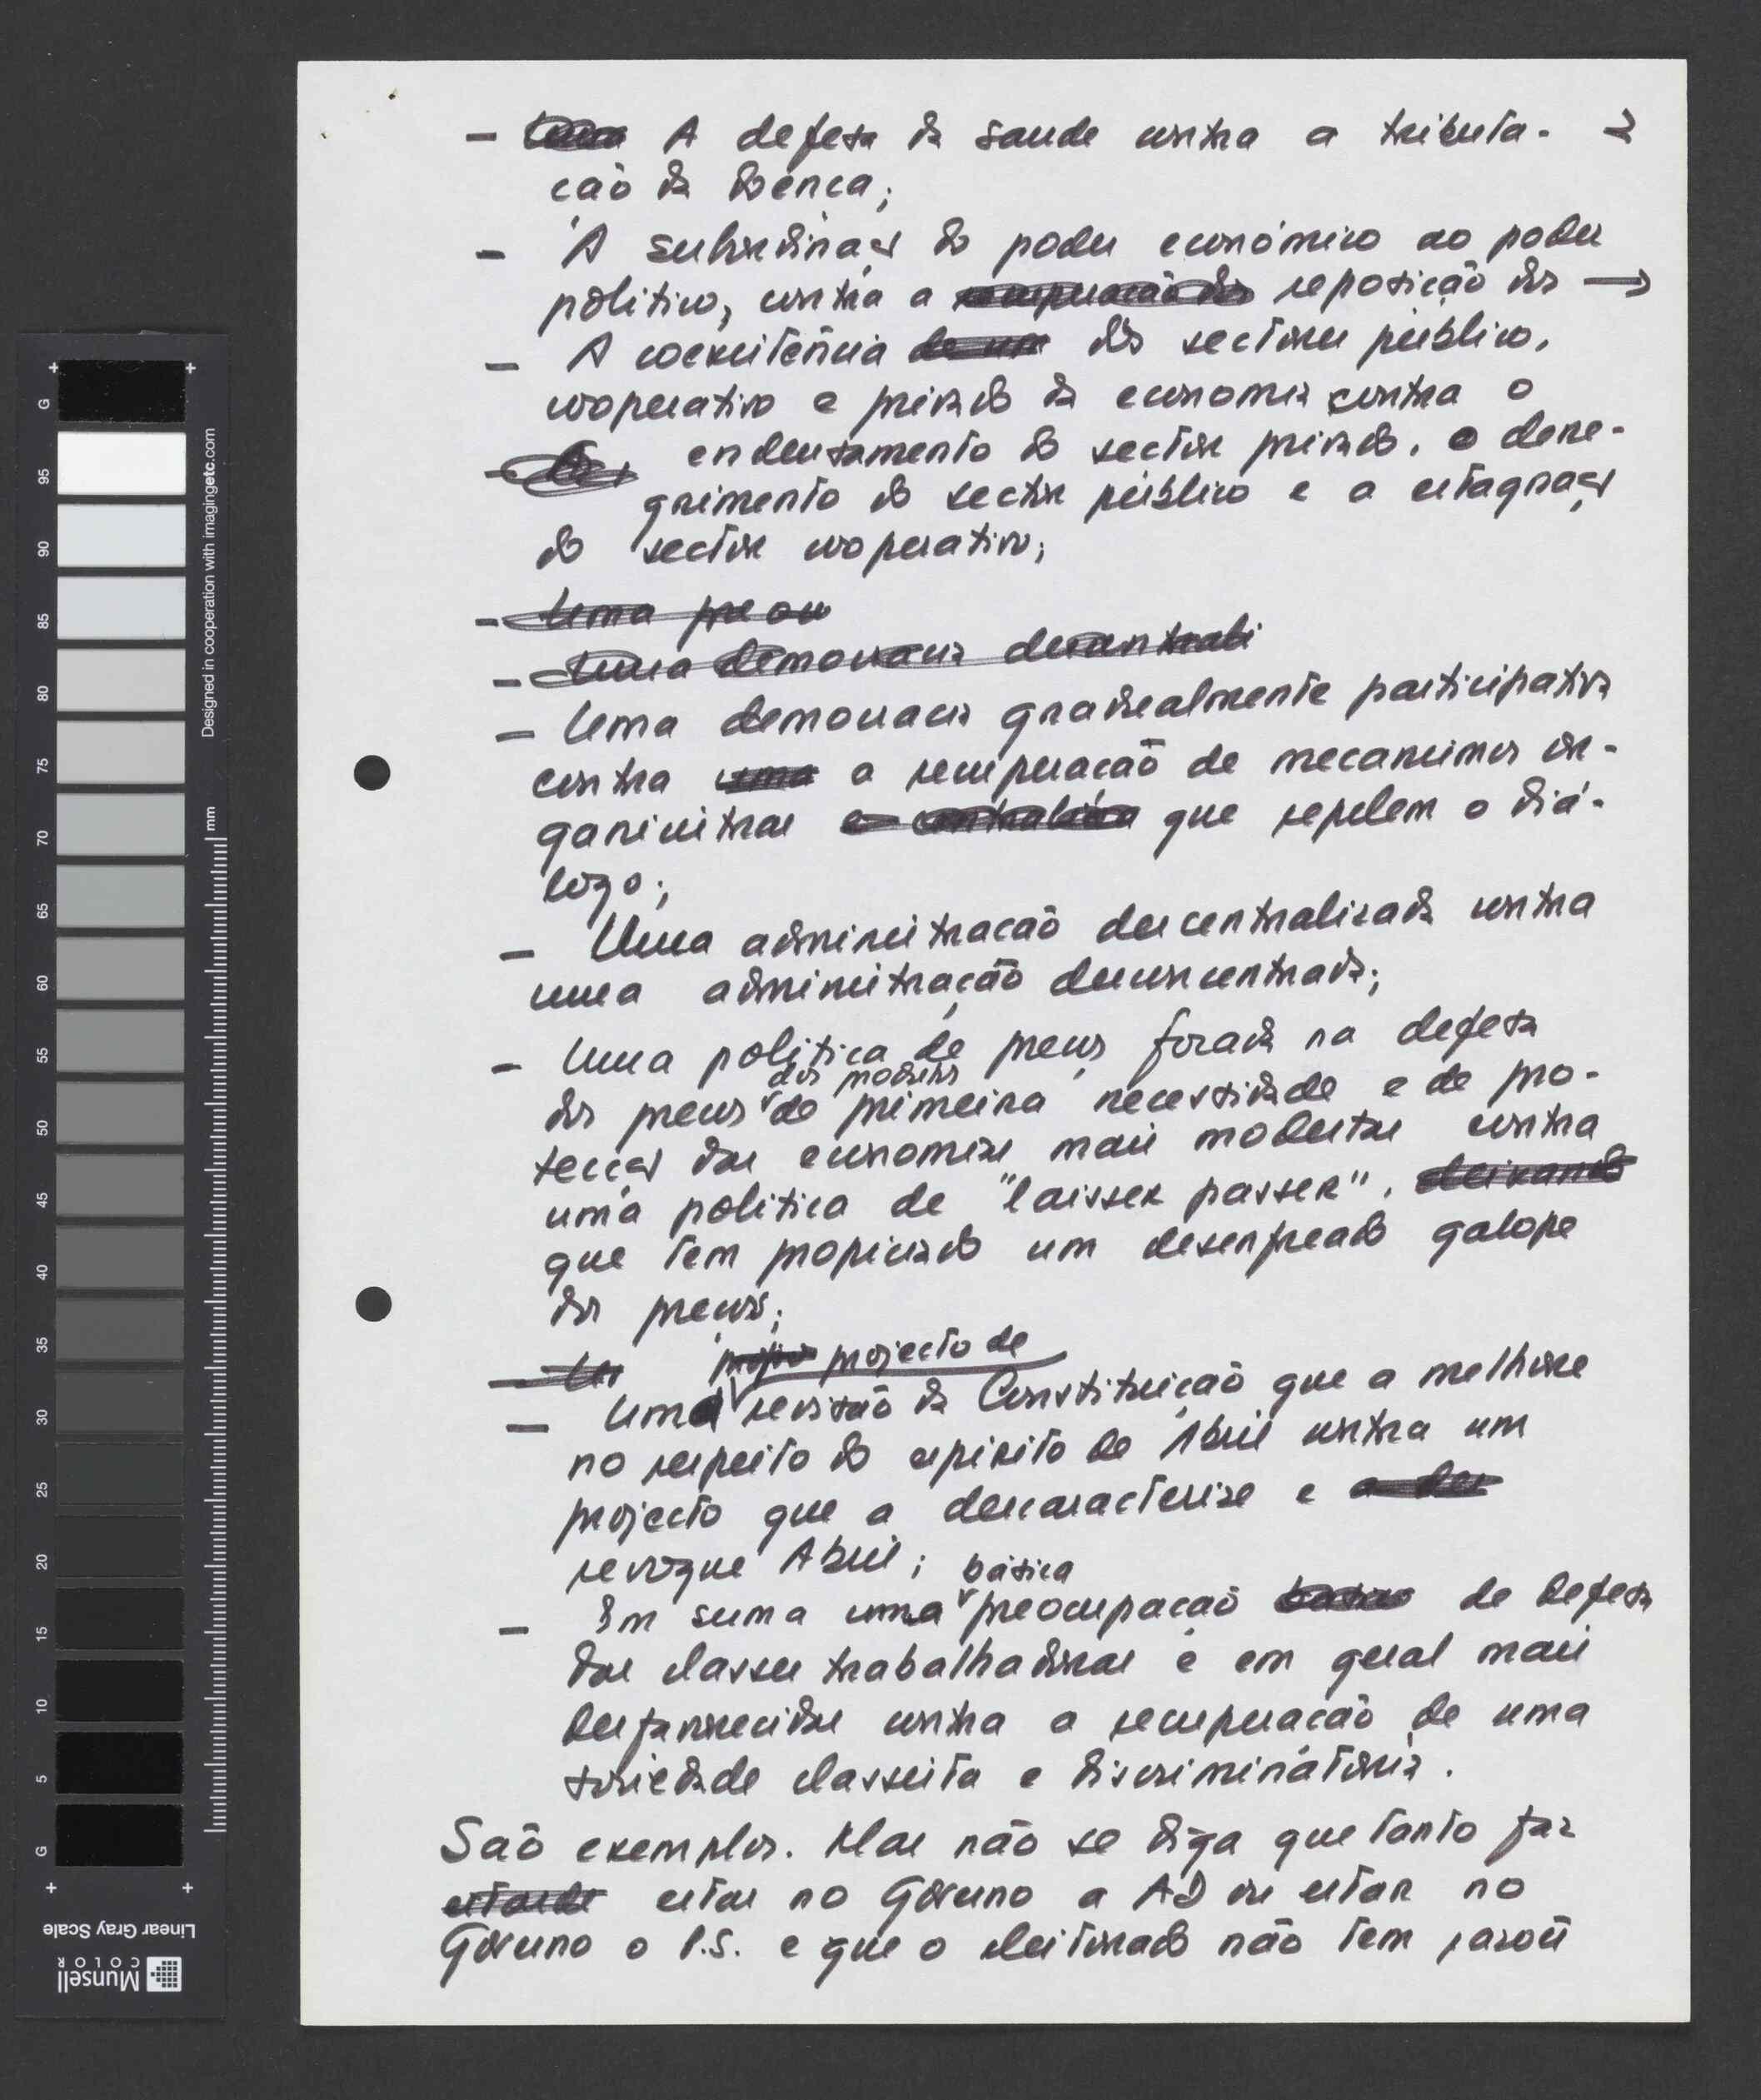 - ~~Uma~~ A defesa da saude contra a tributa- →
ção da doença;
- A subordinação do poder económico ao poder
politico, contra a ~~recuperação dos~~ reposição dos →
- A coexistência ~~de um~~ dos sectores público,
cooperativo e privado da economia contra o
endeusamento do sector privado, o dene-
grimento do sector público e a estagnação
do sector cooperativo;
- ~~Uma preou~~
- ~~Uma democracia descentrali~~
- Uma democracia gradualmente participativa
contra ~~uma~~ a recuperação de mecanismos or-
ganicistas que repelem o diá-
logo;
- Uma administração descentralizada contra
uma administração desconcentrada;
- Uma politica de preços forada na defesa
dos produtos
dos preços de primeira necessidade e de pro-
tecção das economias mais modestas contra
uma politica de "laisser passer", ~~deixando~~
que tem propiciado um desenfreado galope
dos preços;
- ~~Um~~ ~~projec~~ projecto de
- Uma revisão da Constituição que a melhore
no respeito do espirito de Abril contra um
projecto que a descaracterize e ~~a des~~
revogue Abril;
básica
- Em suma uma preocupação ~~basica~~ de defesa
das classes trabalhadoras e em geral mais
desfavorecidas contra a recuperação de uma
sociedade classista e discriminatória.
São exemplos. Mas não se diga que tanto faz
~~estarde~~ estar no Governo a AD ou estar no
Governo o P.S. e que o eleitorado não tem razões
G 95 90 85 80 75 70 65 60 55 50 45 40 35 30 25 20 15 10 5 G
mm
Designed in cooperation with imagingetc.com
Linear Gray Scale
Munsell
COLOR